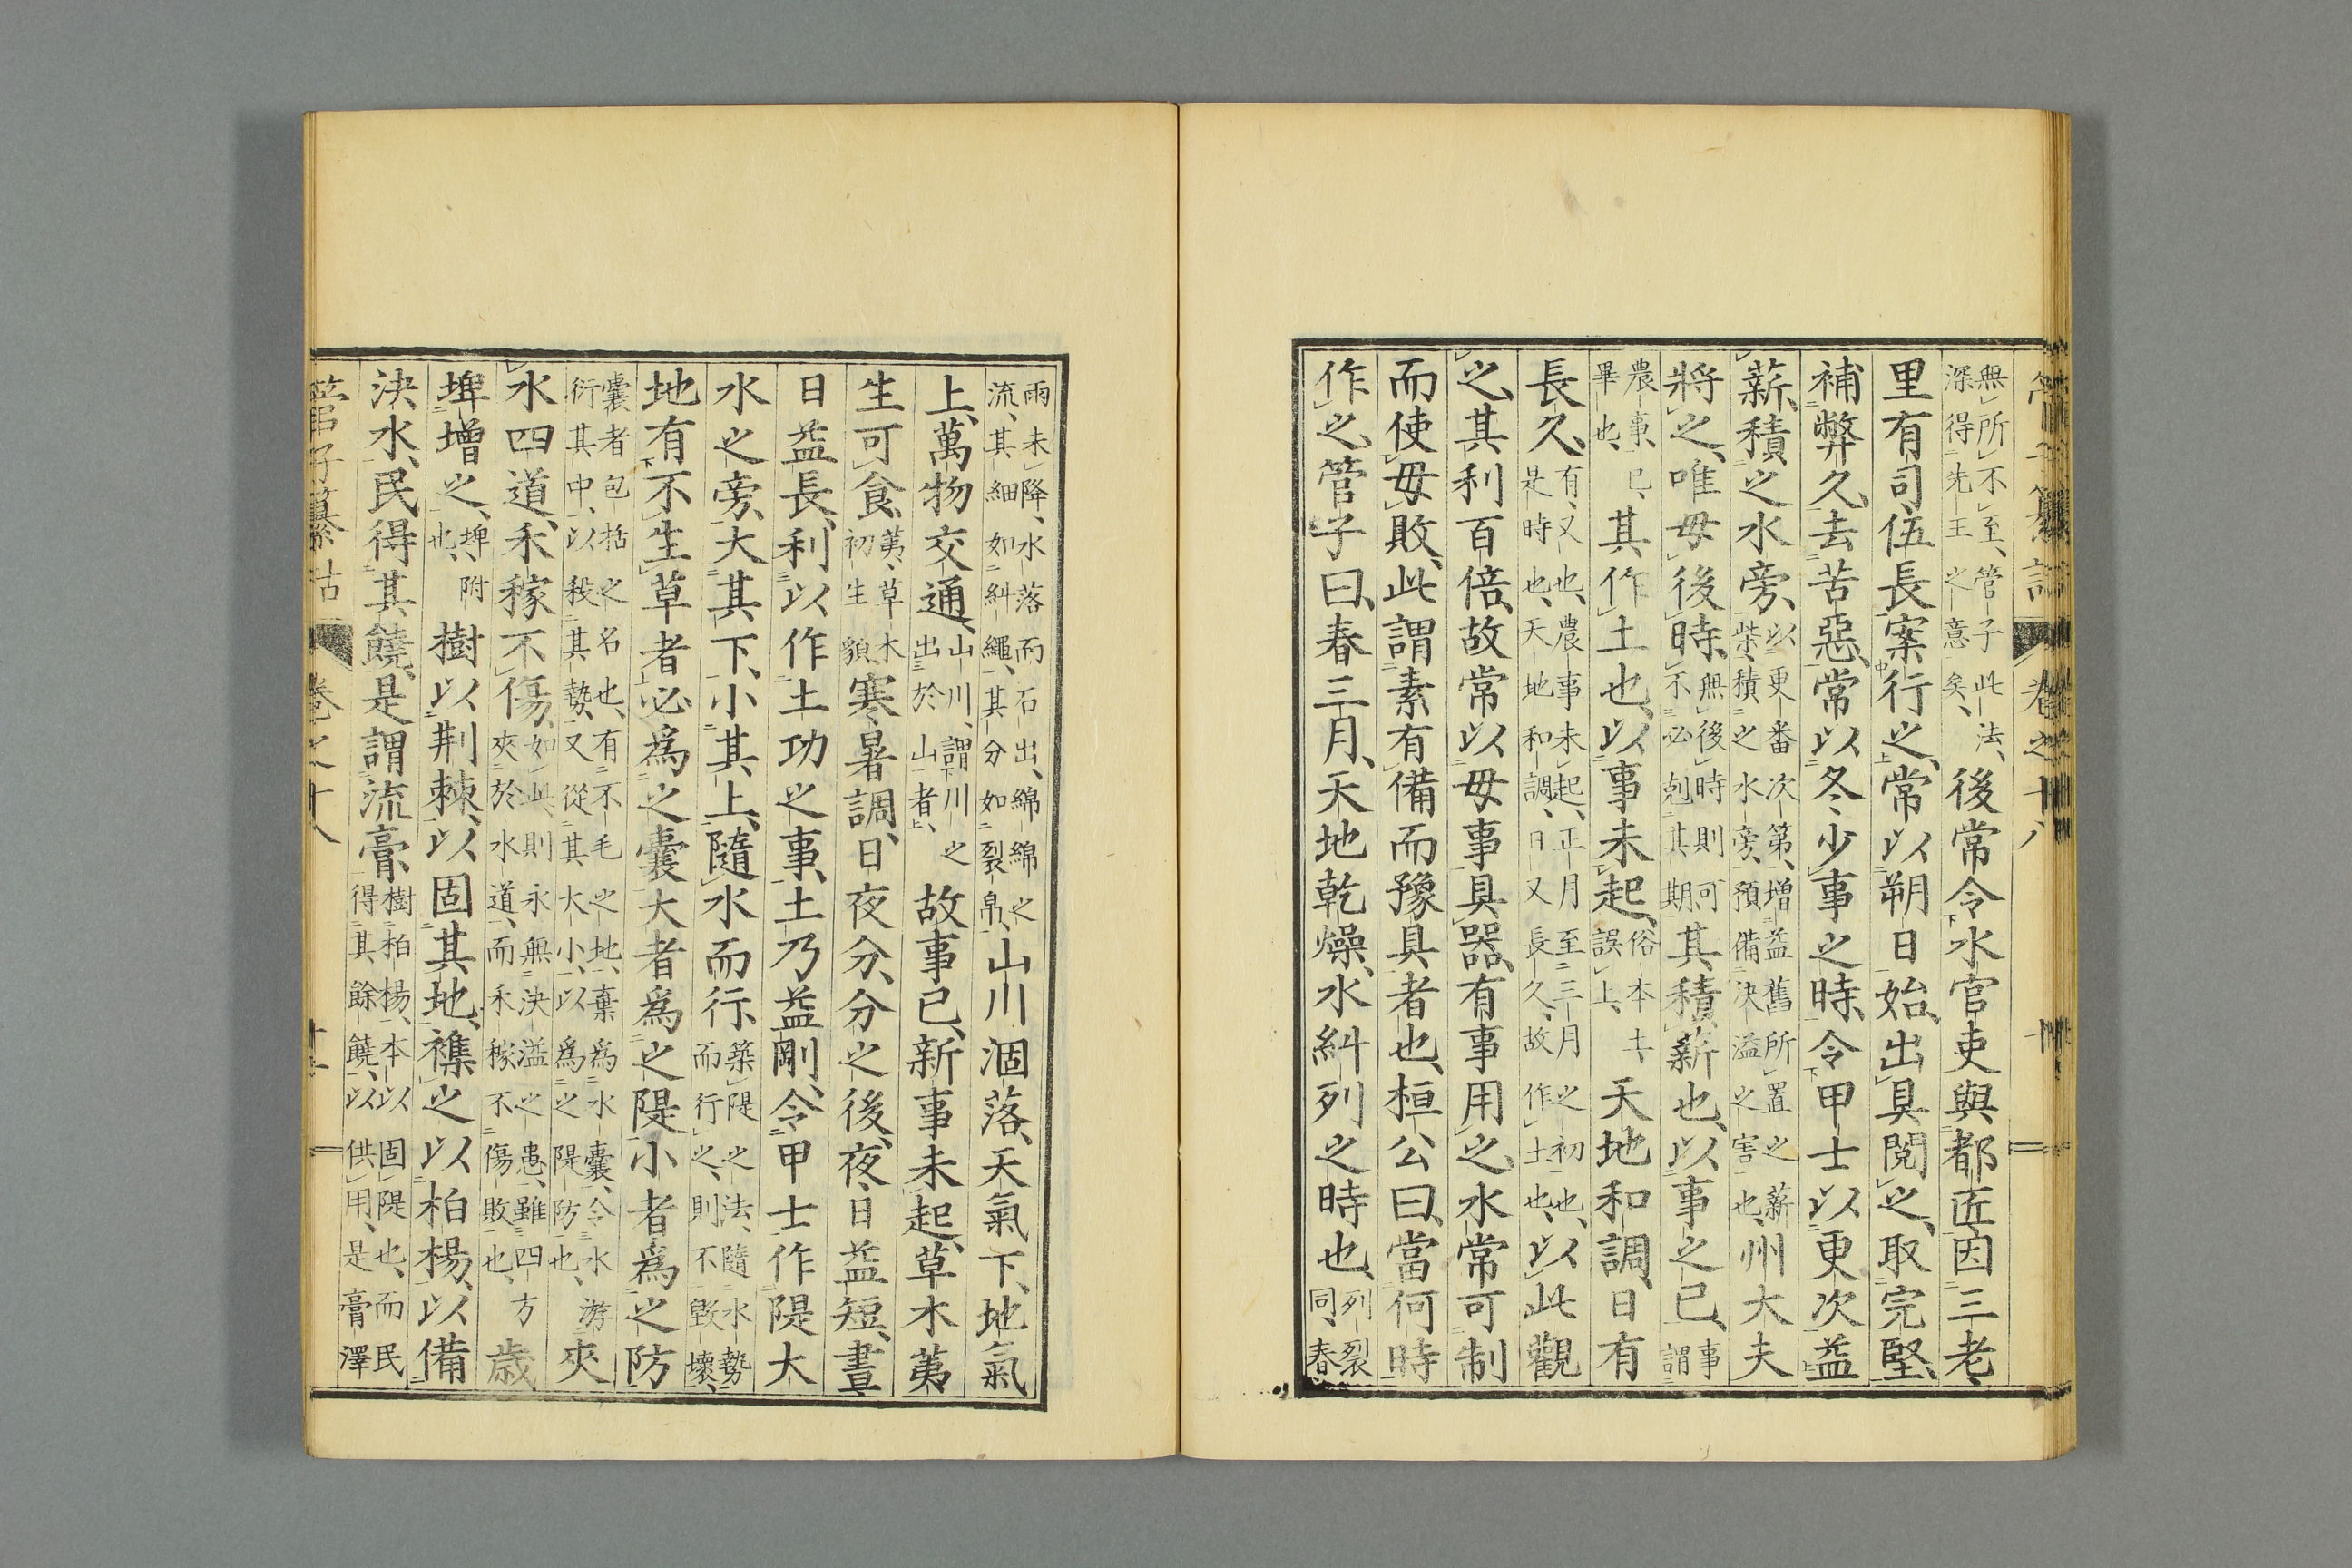 無所不至管子此法深得先王之意矣後常令水官吏與都匠因三老
里有司伍長案行之常以朔日始出具閱之取完堅
補弊久去苦惡常以冬少事之時令甲士以更次益
薪積之水旁以更番次第增益舊所置之薪柴積之水旁預備決溢之害也州大夫
將之唯毋後時無後時則可不必剋其期其積薪也以事之已事謂
農事已畢也其作土也以事未起俗本土誤上天地和調日有
長久有又也農事未起正月至三月之初也是時也天地和調日又長久故作土也以此觀
之其利百倍故常以毋事具器有事用之水常可制
而使毋敗此謂素有備而豫具者也桓公曰當何時
作之管子曰春三月天地乾燥水糾列之時也列裂同春
雨未降水落而石出綿綿之流其細如糾繩其分如裂帛山川涸落天氣下地氣
上萬物交通山川謂川之出於山者故事已新事未起草木荑
生可食荑草木初生貌寒暑調日夜分分之後夜日益短晝
日益長利以作土功之事土乃益剛令甲士作隄大
水之旁大其下小其上隨水而行築隄之法隨水勢而行之則不毀壞
地有不生草者必爲之囊大者爲之隄小者爲之防
囊者包括之名也有不毛之地棄爲水囊令水游衍其中以殺其勢又從其大小以爲之隄防也夾
水四道禾稼不傷如此則永無決溢之患雖四方夾於水道而禾稼不傷敗也歲
埤增之埤附也樹以荆棘以固其地襍之以柏楊以備
決水民得其饒是謂流膏樹柏楊本以固隄也而民得其餘饒以供用是膏澤
管子纂詁 卷之十八